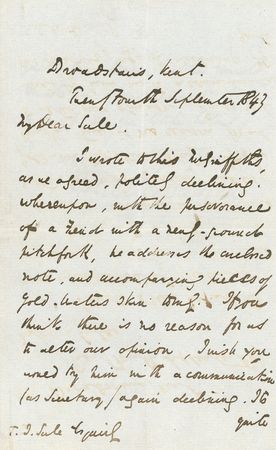 Broadstairs, Kent.
Twenty Fourth September 1843
My Dear Sale.
I wrote to this McGriffiths,
as we agreed, politely declining.
Whereupon, with the perseverance
of a Fiend with a newly-ground
pitchfork, he addresses the enclosed
note, and accompanying pieces of
Gold-beaters skin to me. If you
think there is no reason for us
to alter our opinion, I wish you
would try him with a communication
(as Secretary) again declining. It is
quite
T. J. Sale Esquire